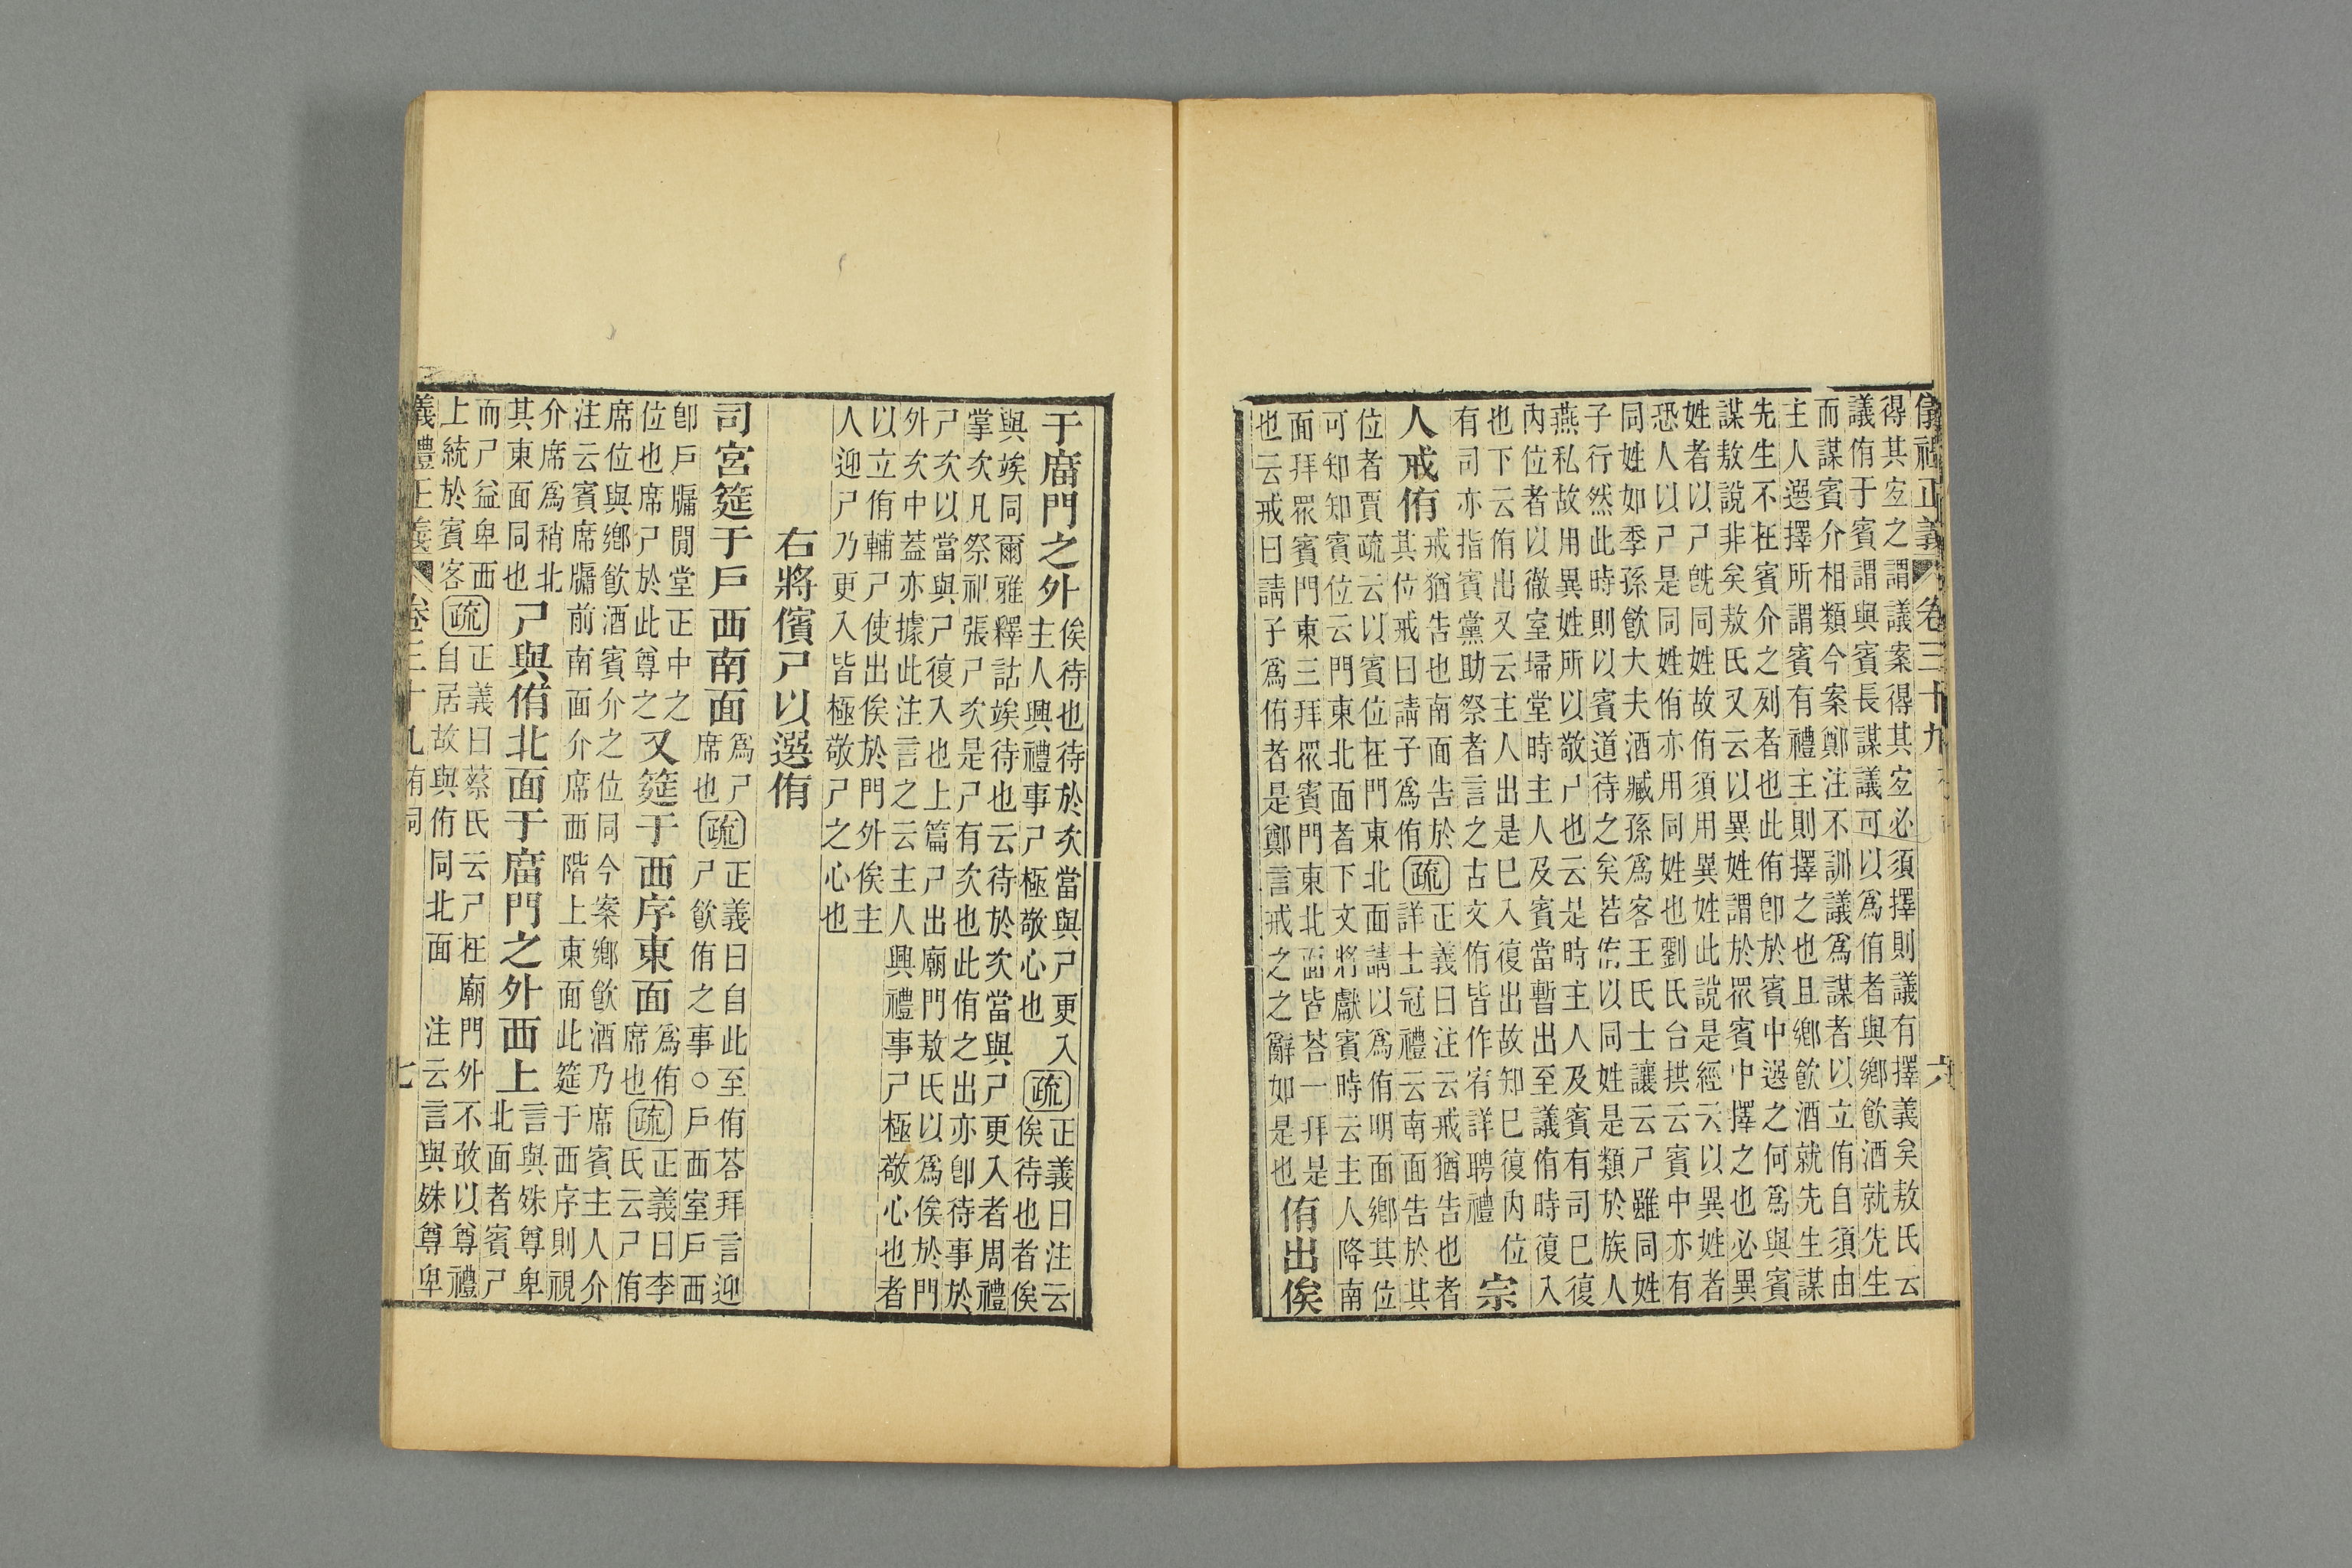 儀禮正義 卷三十九 六
得其宐之謂議案得其宐必須擇則議有擇義矣敖氏云
議侑于賓謂與賓長謀議可以爲侑者與鄉飮酒就先生
而謀賓介相類今案鄭注不訓議爲謀者以立侑自須由
主人選擇所謂賓有禮主則擇之也且鄉飮酒就先生謀
先生不在賓介之列者也此侑卽於賓中選之何爲與賓
謀敖說非矣敖氏又云以異姓謂於眾賓中擇之也必異
姓者以尸旣同姓故侑須用異姓此說是經云以異姓者
恐人以尸是同姓侑亦用同姓也劉氏台拱云賓中亦有
同姓如季孫飮大夫酒臧孫爲客王氏士讓云尸雖同姓
子行然此時則以賓道待之矣若侑以同姓是類於族人
燕私故用異姓所以敬尸也云是時主人及賓有司巳復
內位者以徹室埽堂時主人及賓當暫出至議侑時復入
也下云侑出又云主人出是巳入復出故知巳復內位
有司亦指賓黨助祭者言之古文侑皆作宥詳聘禮
宗
人戒侑
戒猶告也南面告於
其位戒曰請子爲侑
疏
正義曰注云戒猶告也者
詳士冠禮云南面告於其
位者賈疏云以賓位在門東北面請以爲侑明面鄉其位
可知知賓位云門東北面者下文將獻賓時云主人降南
面拜眾賓門東三拜眾賓門東北面皆荅一拜是
也云戒曰請子爲侑者是鄭言戒之之辭如是也
侑出俟
于庿門之外
俟待也待於次當與尸更入
主人興禮事尸極敬心也
疏
正義曰注云
俟待也者俟
與竢同爾雅釋詁竢待也云待於次當與尸更入者周禮
掌次凡祭祀張尸次是尸有次也此侑之出亦卽待事於
尸次以當與尸復入也上篇尸出廟門敖氏以爲俟於門
外次中蓋亦據此注言之云主人興禮事尸極敬心也者
以立侑輔尸使出俟於門外俟主
人迎尸乃更入皆極敬尸之心也
右將儐尸以選侑
司宮筵于戶西南面
爲尸
席也
疏
正義曰自此至侑荅拜言迎
尸飮侑之事○戶西室戶西
卽戶牖閒堂正中之
位也席尸於此尊之
又筵于西序東面
爲侑
席也
疏
正義曰李
氏云尸侑
席位與鄉飮酒賓介之位同今案鄉飮酒乃席賓主人介
注云賓席牖前南面介席西階上東面此筵于西序則視
介席爲稍北
其東面同也
尸與侑北面于庿門之外西上
言與殊尊卑
北面者賓尸
而尸益卑西
上統於賓客
疏
正義曰蔡氏云尸在廟門外不敢以尊禮
自居故與侑同北面 注云言與殊尊卑
義禮正義 卷三十九 有司 七